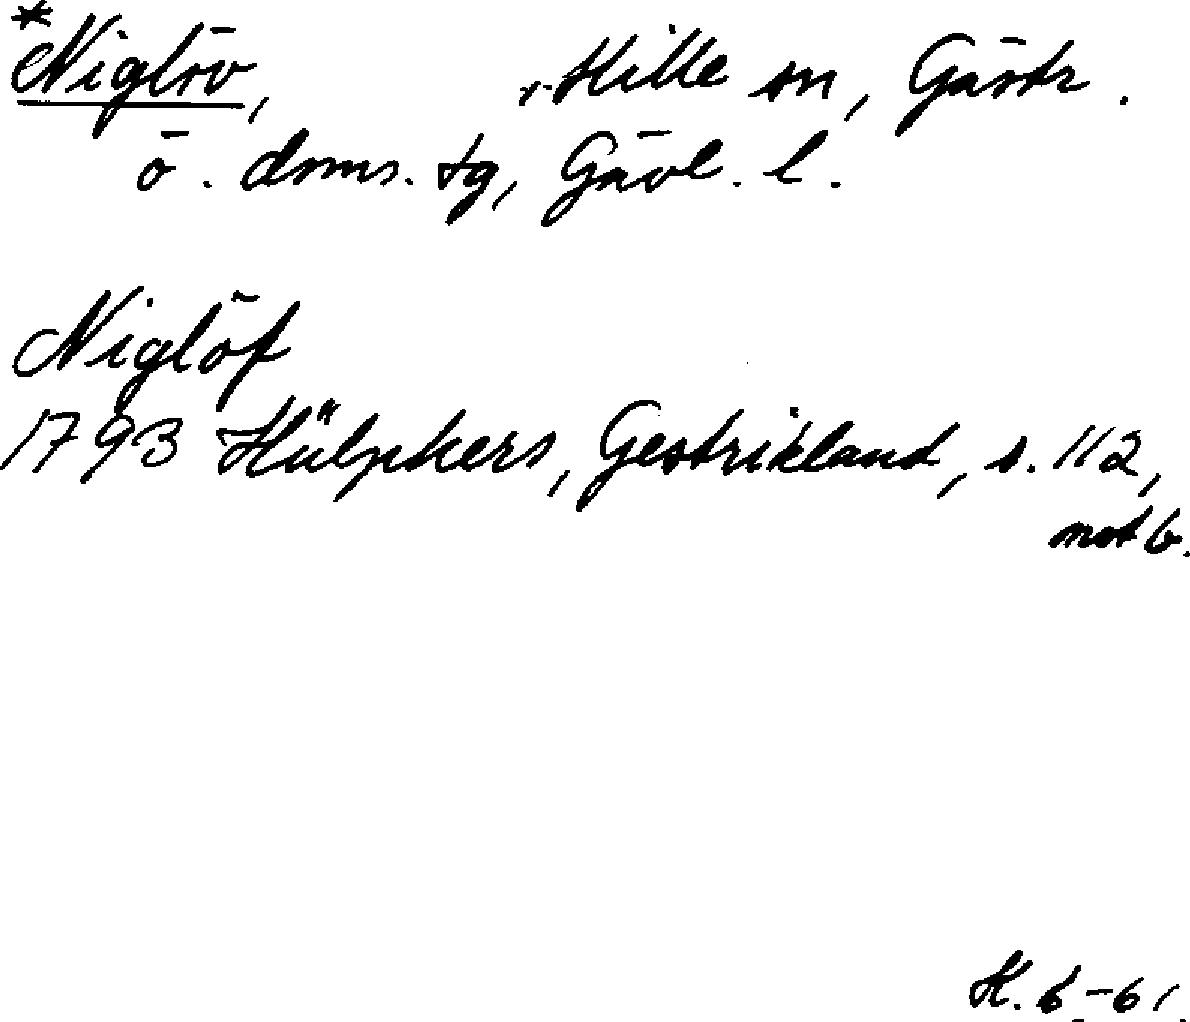 *Niglöv, i Hille sn, Gästr.
ö. doms. tg, Gävl. l.
Niglöf
1793 Hülpkers, Gestrikland, s. 112,
not b.
H. b-61.